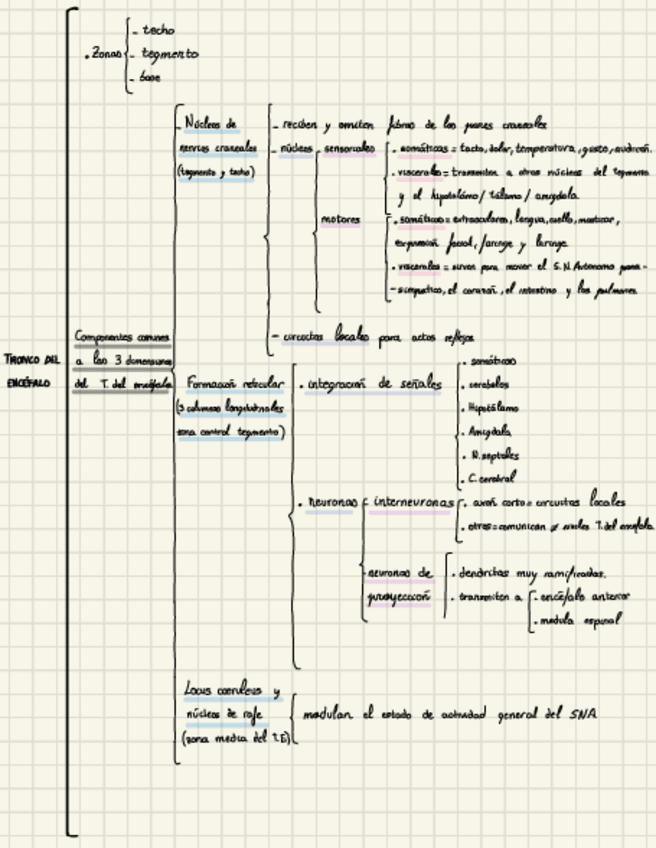 - techo
. Zonas - tegmento
- base
- Núcleos de nervios craneales (tegmento y techo)
- reciben y emiten fibras de los pares craneales
- núcleos sensoriales
. somáticos = tacto, dolor, temperatura, gusto, audición.
. viscerales = transmiten a otros núcleos del tegmento
y el hipotálamo / tálamo / amígdala.
motores
. somáticos = extraoculares, lengua, cuello, masticar,
expresión facial, faringe y laringe
. viscerales = sirven para mover el S.N. Autónomo para-
-simpático, el corazón, el intestino y los pulmones.
- circuitos locales para actos reflejos
TRONCO DEL
ENCÉFALO
Componentes comunes
a las 3 
del T. del encéfalo
Formación reticular
(3 columnas longitudinales
zona control tegmento)
. integración de señales
. somáticas
. cerebelos
. Hipotálamo
. Amígdala
. N. septales
. C. cerebral
. neuronas
interneuronas
. axón corto = circuitos locales
. otros = comunican ≠ niveles T. del encéfalo.
- neuronas de
proyección
. dendritas muy ramificadas.
. transmiten a
. encéfalo anterior
. médula espinal
Locus coeruleus y
núcleos de rafe
(zona media del T.E)
modulan el estado de actividad general del SNA